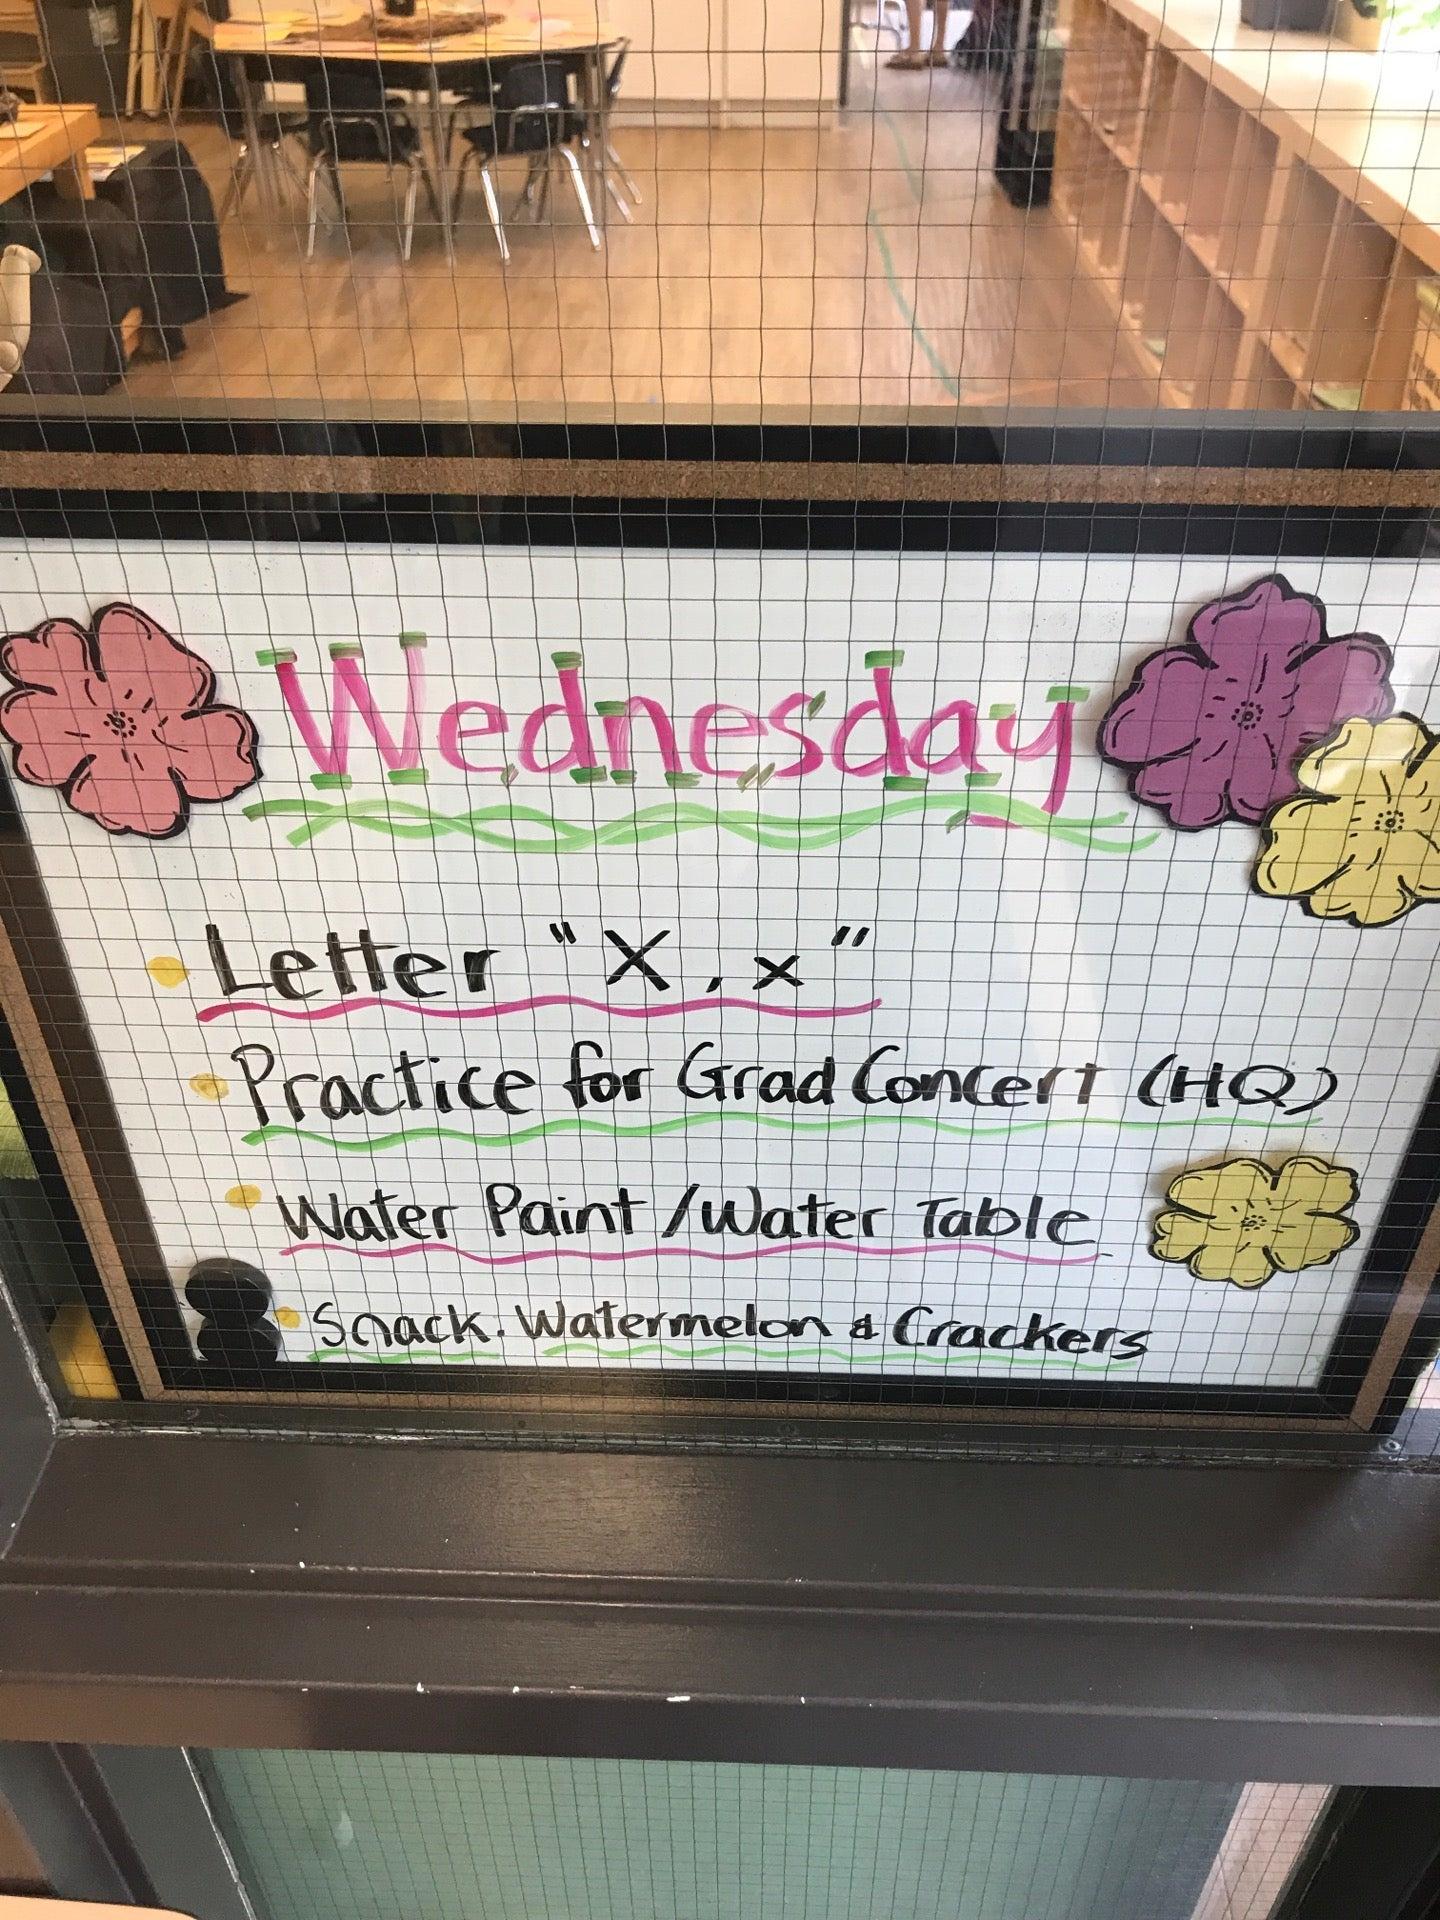 Wednesday
Letter "X, x"
Practice for Grad Concert (HQ)
Water Paint / Water Table
Snack. Watermelon & Crackers